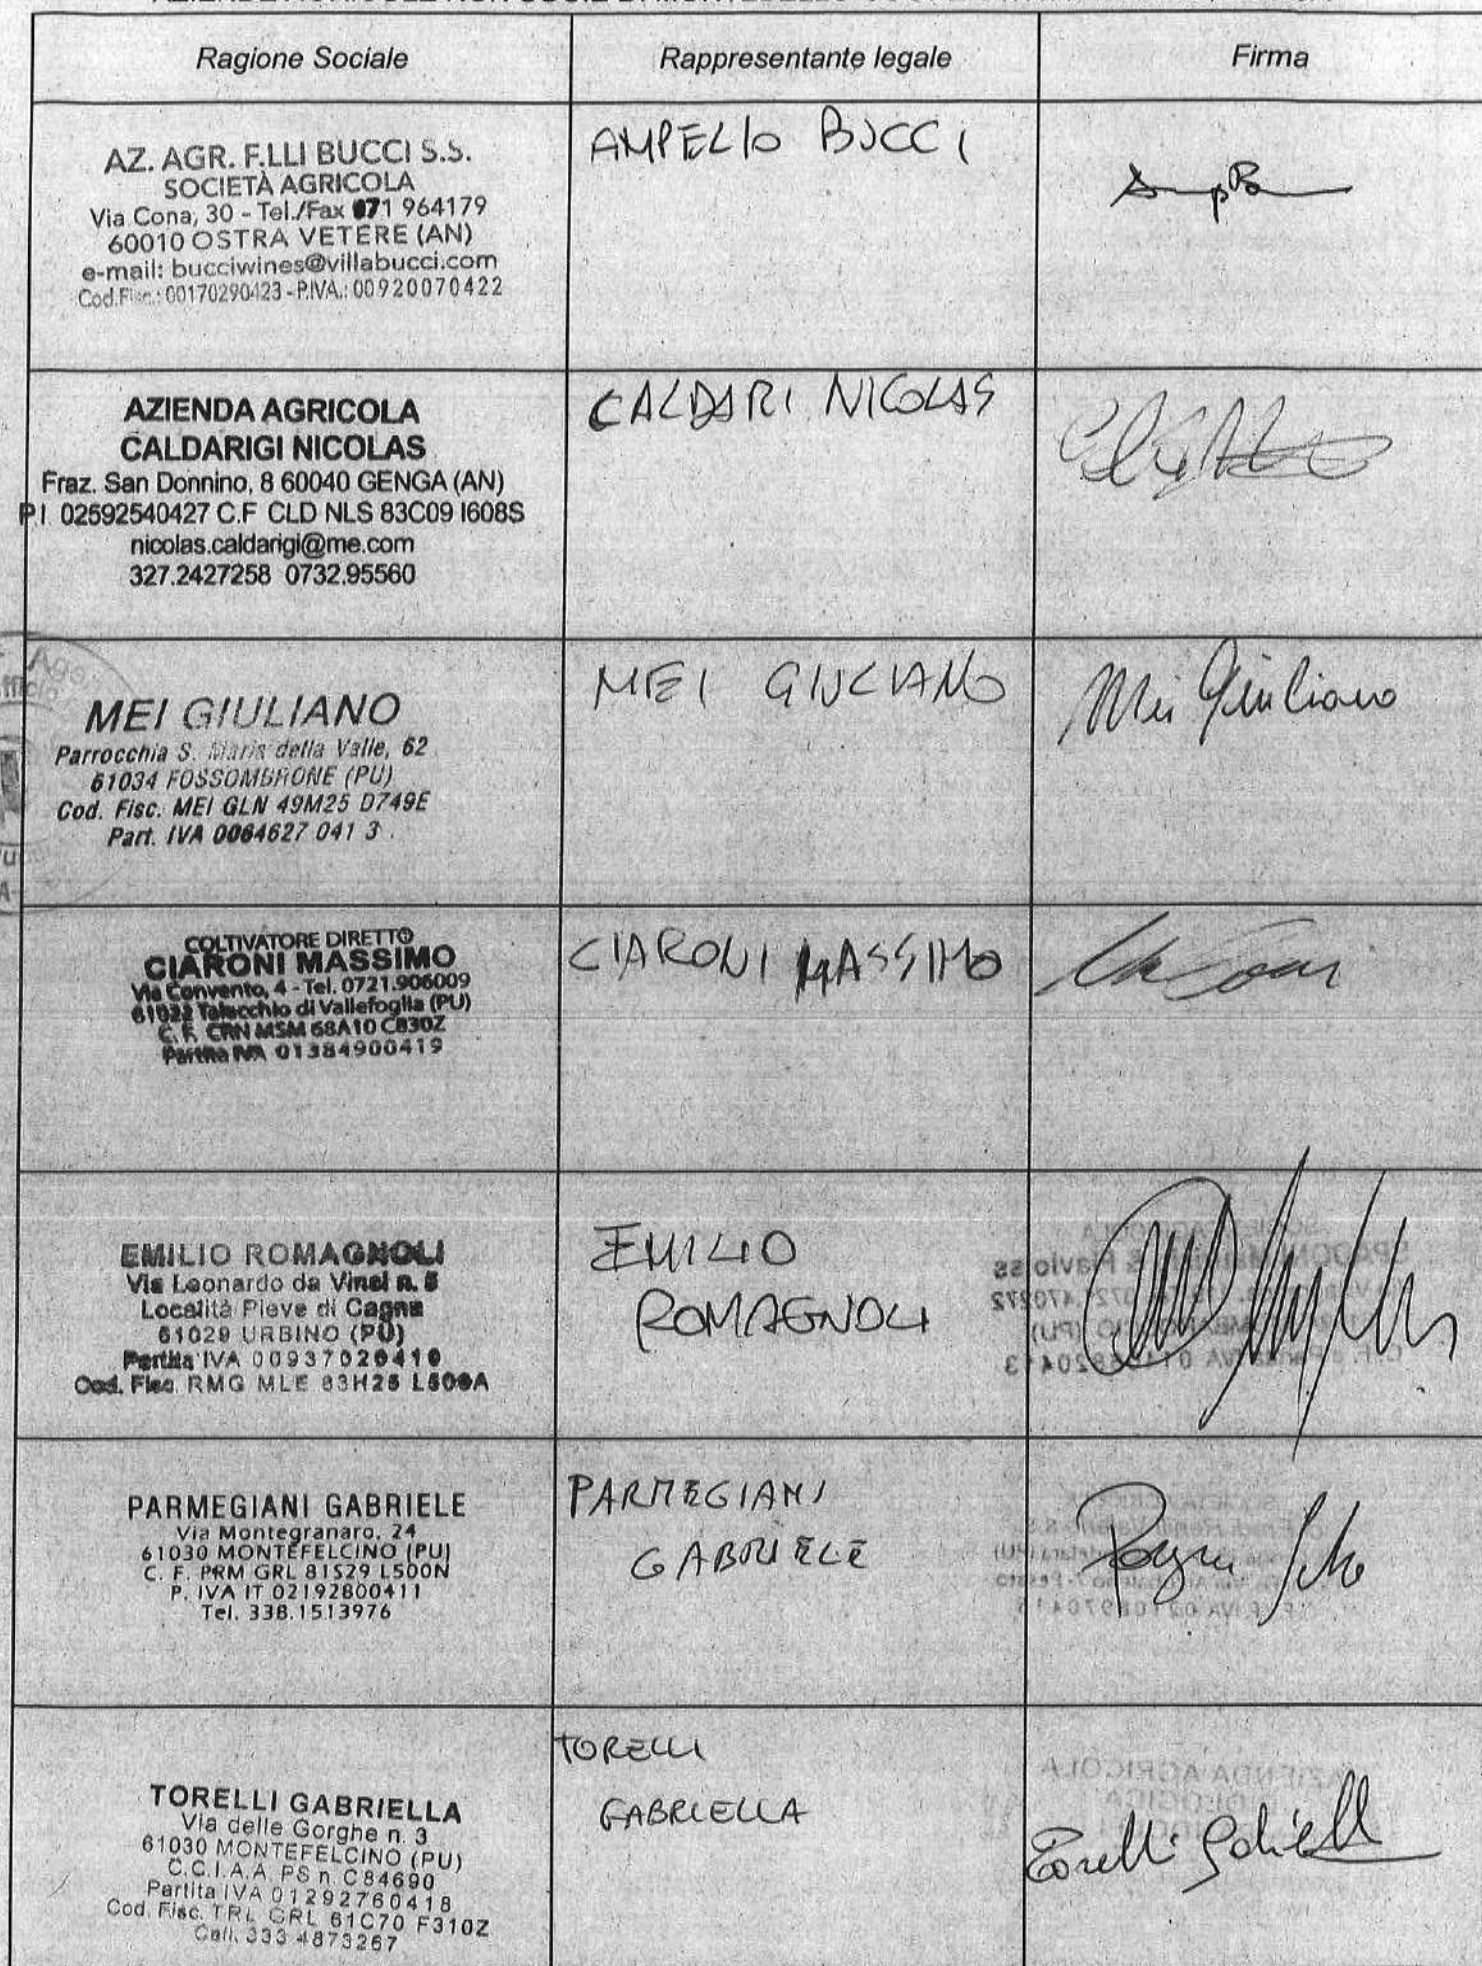 Ragione Sociale
Rappresentante legale
Firma
AZ. AGR. F.LLI BUCCI S.S.
SOCIETÀ AGRICOLA
Via Cona, 30 - Tel./Fax 071 964179
60010 OSTRA VETERE (AN)
e-mail: bucciwines@villabucci.com
Cod.Fisc.: 00170290423 - P.IVA.: 00920070422
AMPELIO BUCCI
AZIENDA AGRICOLA
CALDARIGI NICOLAS
Fraz. San Donnino, 8 60040 GENGA (AN)
P.I 02592540427 C.F CLD NLS 83C09 I608S
nicolas.caldarigi@me.com
327.2427258 0732.95560
CALDARI NICOLAS
MEI GIULIANO
Parrocchia S. Maria della Valle, 62
61034 FOSSOMBRONE (PU)
Cod. Fisc. MEI GLN 49M25 D749E
Part. IVA 0064627 041 3
MEI GIULIANO
Mei Giuliano
COLTIVATORE DIRETTO
CIARONI MASSIMO
Via Convento, 4 - Tel. 0721.906009
61022 Talacchio di Vallefoglia (PU)
C. F. CRN MSM 68A10 C830Z
Partita IVA 01384900419
CIARONI MASSIMO
EMILIO ROMAGNOLI
Via Leonardo da Vinci n. 5
Località Pieve di Cagna
61029 URBINO (PU)
Partita IVA 00937020410
Cod. Fisc. RMG MLE 63H25 L500A
EMILIO
ROMAGNOLI
PARMEGIANI GABRIELE
Via Montegranaro, 24
61030 MONTEFELCINO (PU)
C. F. PRM GRL 81S29 L500N
P. IVA IT 02192800411
Tel. 338.1513976
PARMEGIANI
GABRIELE
TORELLI GABRIELLA
Via delle Gorghe n. 3
61030 MONTEFELCINO (PU)
C.C.I.A.A. PS n. C84690
Partita IVA 01292760418
Cod. Fisc. TRL GRL 61C70 F310Z
Cell. 333 4873267
TORELLI
GABRIELLA
Torelli Gabriella